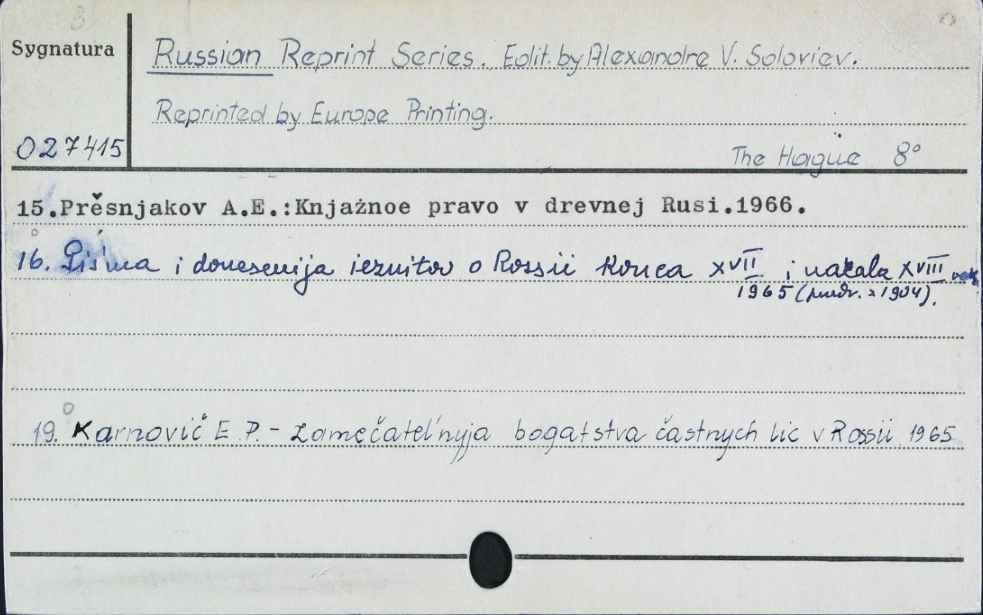 Sygnatura
Russian Reprint Series. Edit. by Alexandre V. Soloviev.
Reprinted by Europe Printing.
027415
The Hague 8°
15. Prěsnjakov A.E.: Knjažnoe pravo v drevnej Rusi. 1966.
16. Piśma i donesenija iezuitov o Rossii konca XVII i načala XVIII vek
1965 (pradr. z 1904).
19. Karnovič E. P. - Zamečatel'nyja bogatstva častnych lic v Rossii 1965